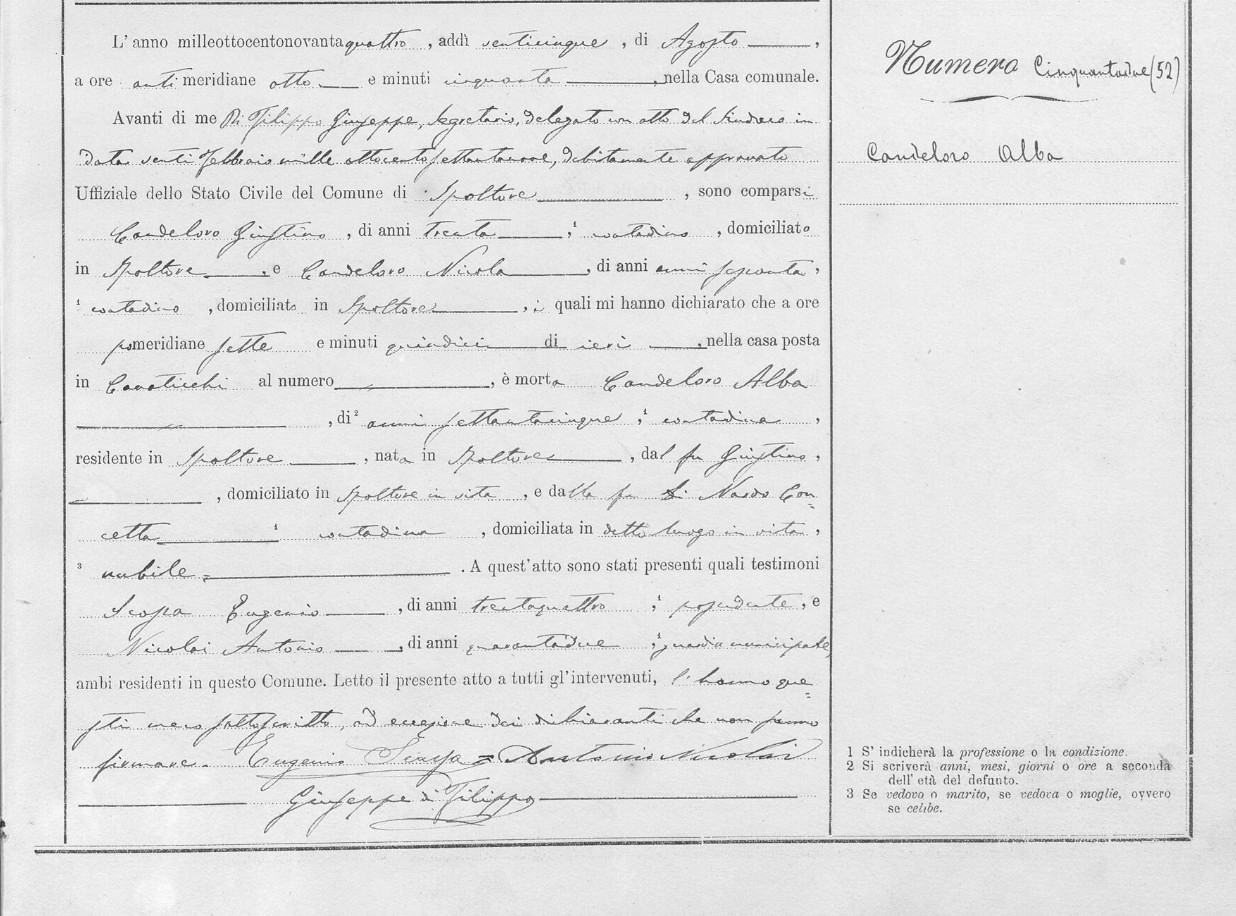 L' anno milleottocentonovantaquattro, addì venticinque, di Agosto,
a ore antimeridiane otto e minuti cinquanta, nella Casa comunale.
Avanti di me Di Filippo Giuseppe, Segretario, delegato con atto del Sindaco in
data venti Febbraio mille ottocento settantanove, debitamente approvato
Uffiziale dello Stato Civile del Comune di Spoltore, sono comparsi
Candeloro Giustino, di anni trenta, ¹ contadino, domiciliato
in Spoltore, e Candeloro Nicola, di anni anni sessanta,
¹ contadino, domiciliato in Spoltore, i quali mi hanno dichiarato che a ore
pomeridiane sette e minuti quindici di ieri, nella casa posta
in Cavaticchi al numero, è morta Candeloro Alba
, di ² anni settantacinque, ¹ contadina,
residente in Spoltore, nata in Spoltore, dal fu Giustino,
, domiciliato in Spoltore in vita, e dalla fu Di Nardo Con=
cetta ¹ contadina, domiciliata in detto luogo in vita,
³ nubile. A quest'atto sono stati presenti quali testimoni
Scopa Eugenio, di anni trentaquattro, ¹ possidente, e
Nicolai Antonio, di anni quarantadue, ¹ guardia municipale,
ambi residenti in questo Comune. Letto il presente atto a tutti gl'intervenuti, l'hanno que=
sti meco sottoscritto, ad eccezione dei dichiaranti che non sanno
firmare. Eugenio Scopa = Antonio Nicolai
Giuseppe di Filippo
Numero Cinquantadue (52)
Candeloro Alba
1 S' indicherà la professione o la condizione.
2 Si scriverà anni, mesi, giorni o ore a seconda
dell' età del defunto.
3 Se vedovo o marito, se vedova o moglie, ovvero
se celibe.